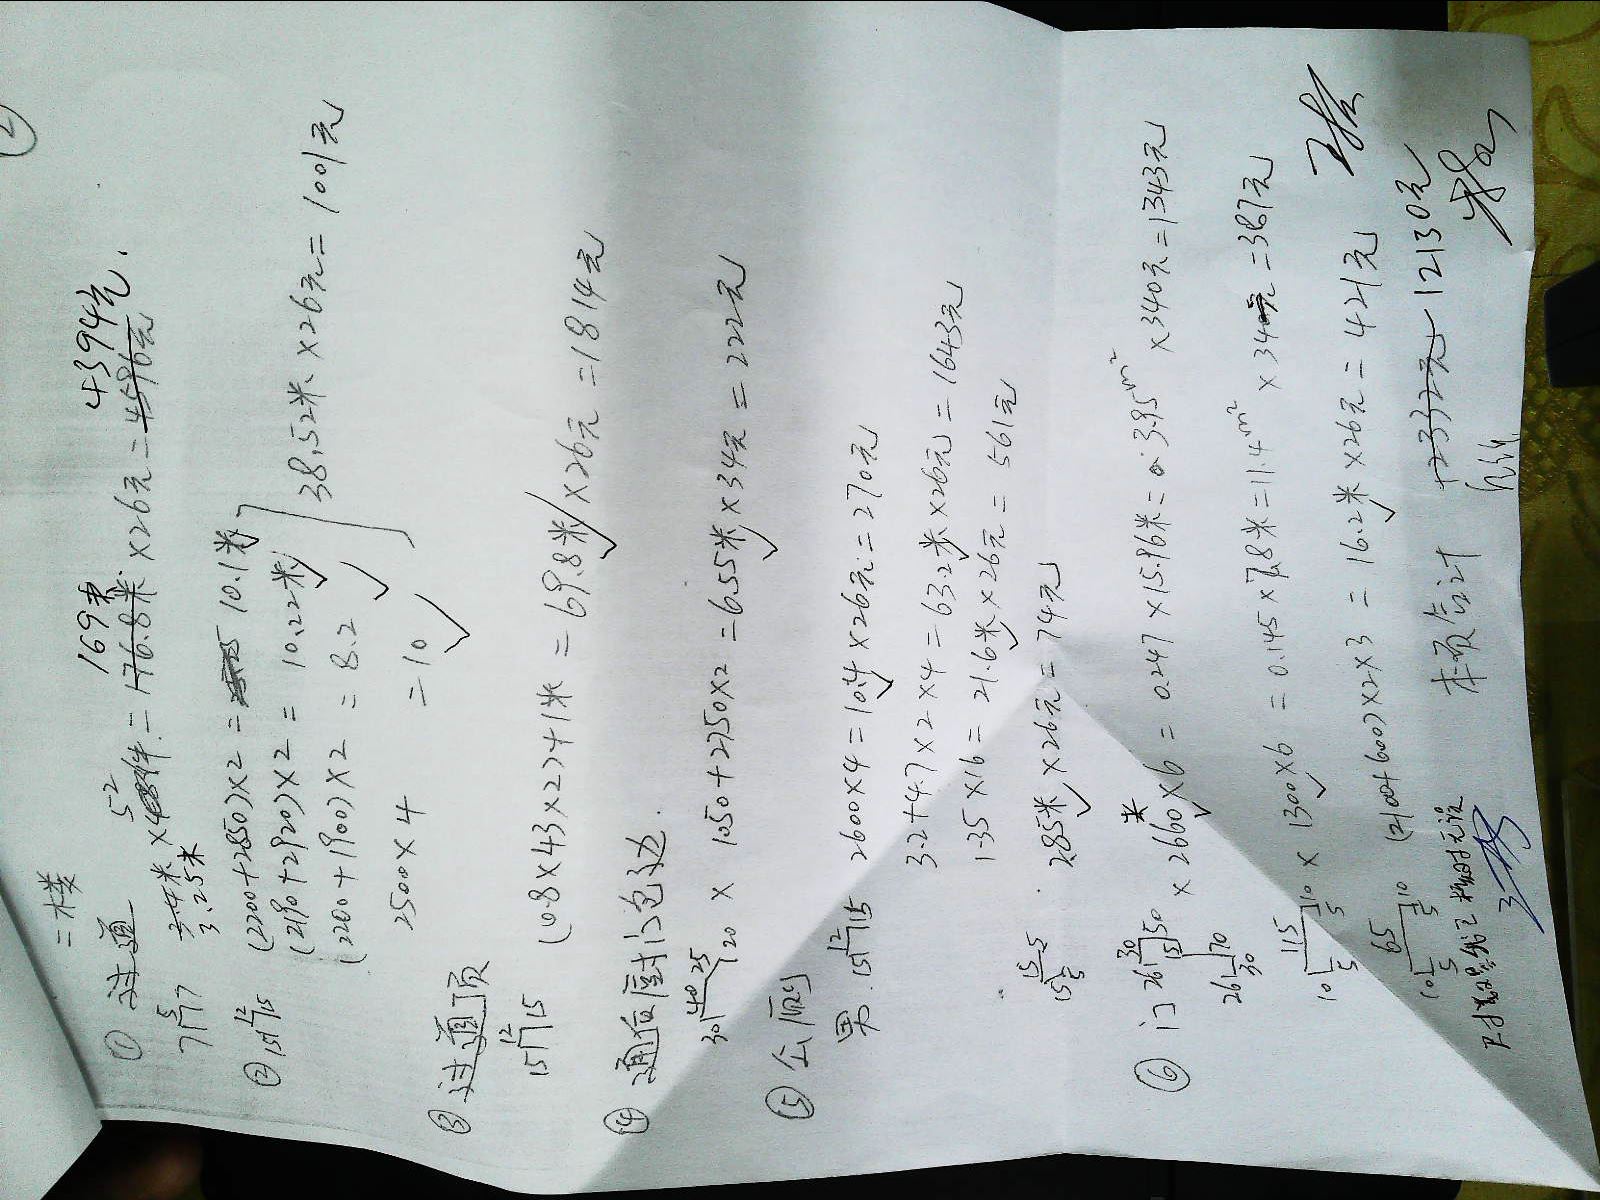 ②
二楼
① 过道
169米 4394元.
3.4米 × 48件 52 = 176.8米 × 26元 = 4596元
3.25米
7 5 7
② 15 12 15
(2200+2850)×2 = 10.1米
(2190+2920)×2 = 10.22米
(2200+1900)×2 = 8.2
2500×4 = 10
38.52米 × 26元 = 1001元
③ 过道顶
15 12 15
(0.8×43×2)+1米 = 69.8米 × 26元 = 1814元
④ 通后厨门包边
30 40 25 20 × 1050+2750×2 = 6.55米 × 34元 = 222元
⑤ 公厕
男. 15 12 15 2600×4 = 10.4 × 26元 = 270元
3.2+4.7×2×4 = 63.2米 × 26元 = 1643元
1.35×16 = 21.6米 × 26元 = 561元
15 15 5 25 2.85米 × 26元 = 74元
⑥ 门 26 30 15 50 26 70 30 × 2660米 × 6 = 0.247 × 15.96米 = 3.95m² × 340元 = 1343元
10 5 115 10 5 × 1300×6 = 0.145 × 7.8米 = 11.4m² × 34元 = 387元
10 5 65 10 5 (2100+600)×2×3 = 16.2米 × 26元 = 421元
本页合计 12332元 12130元